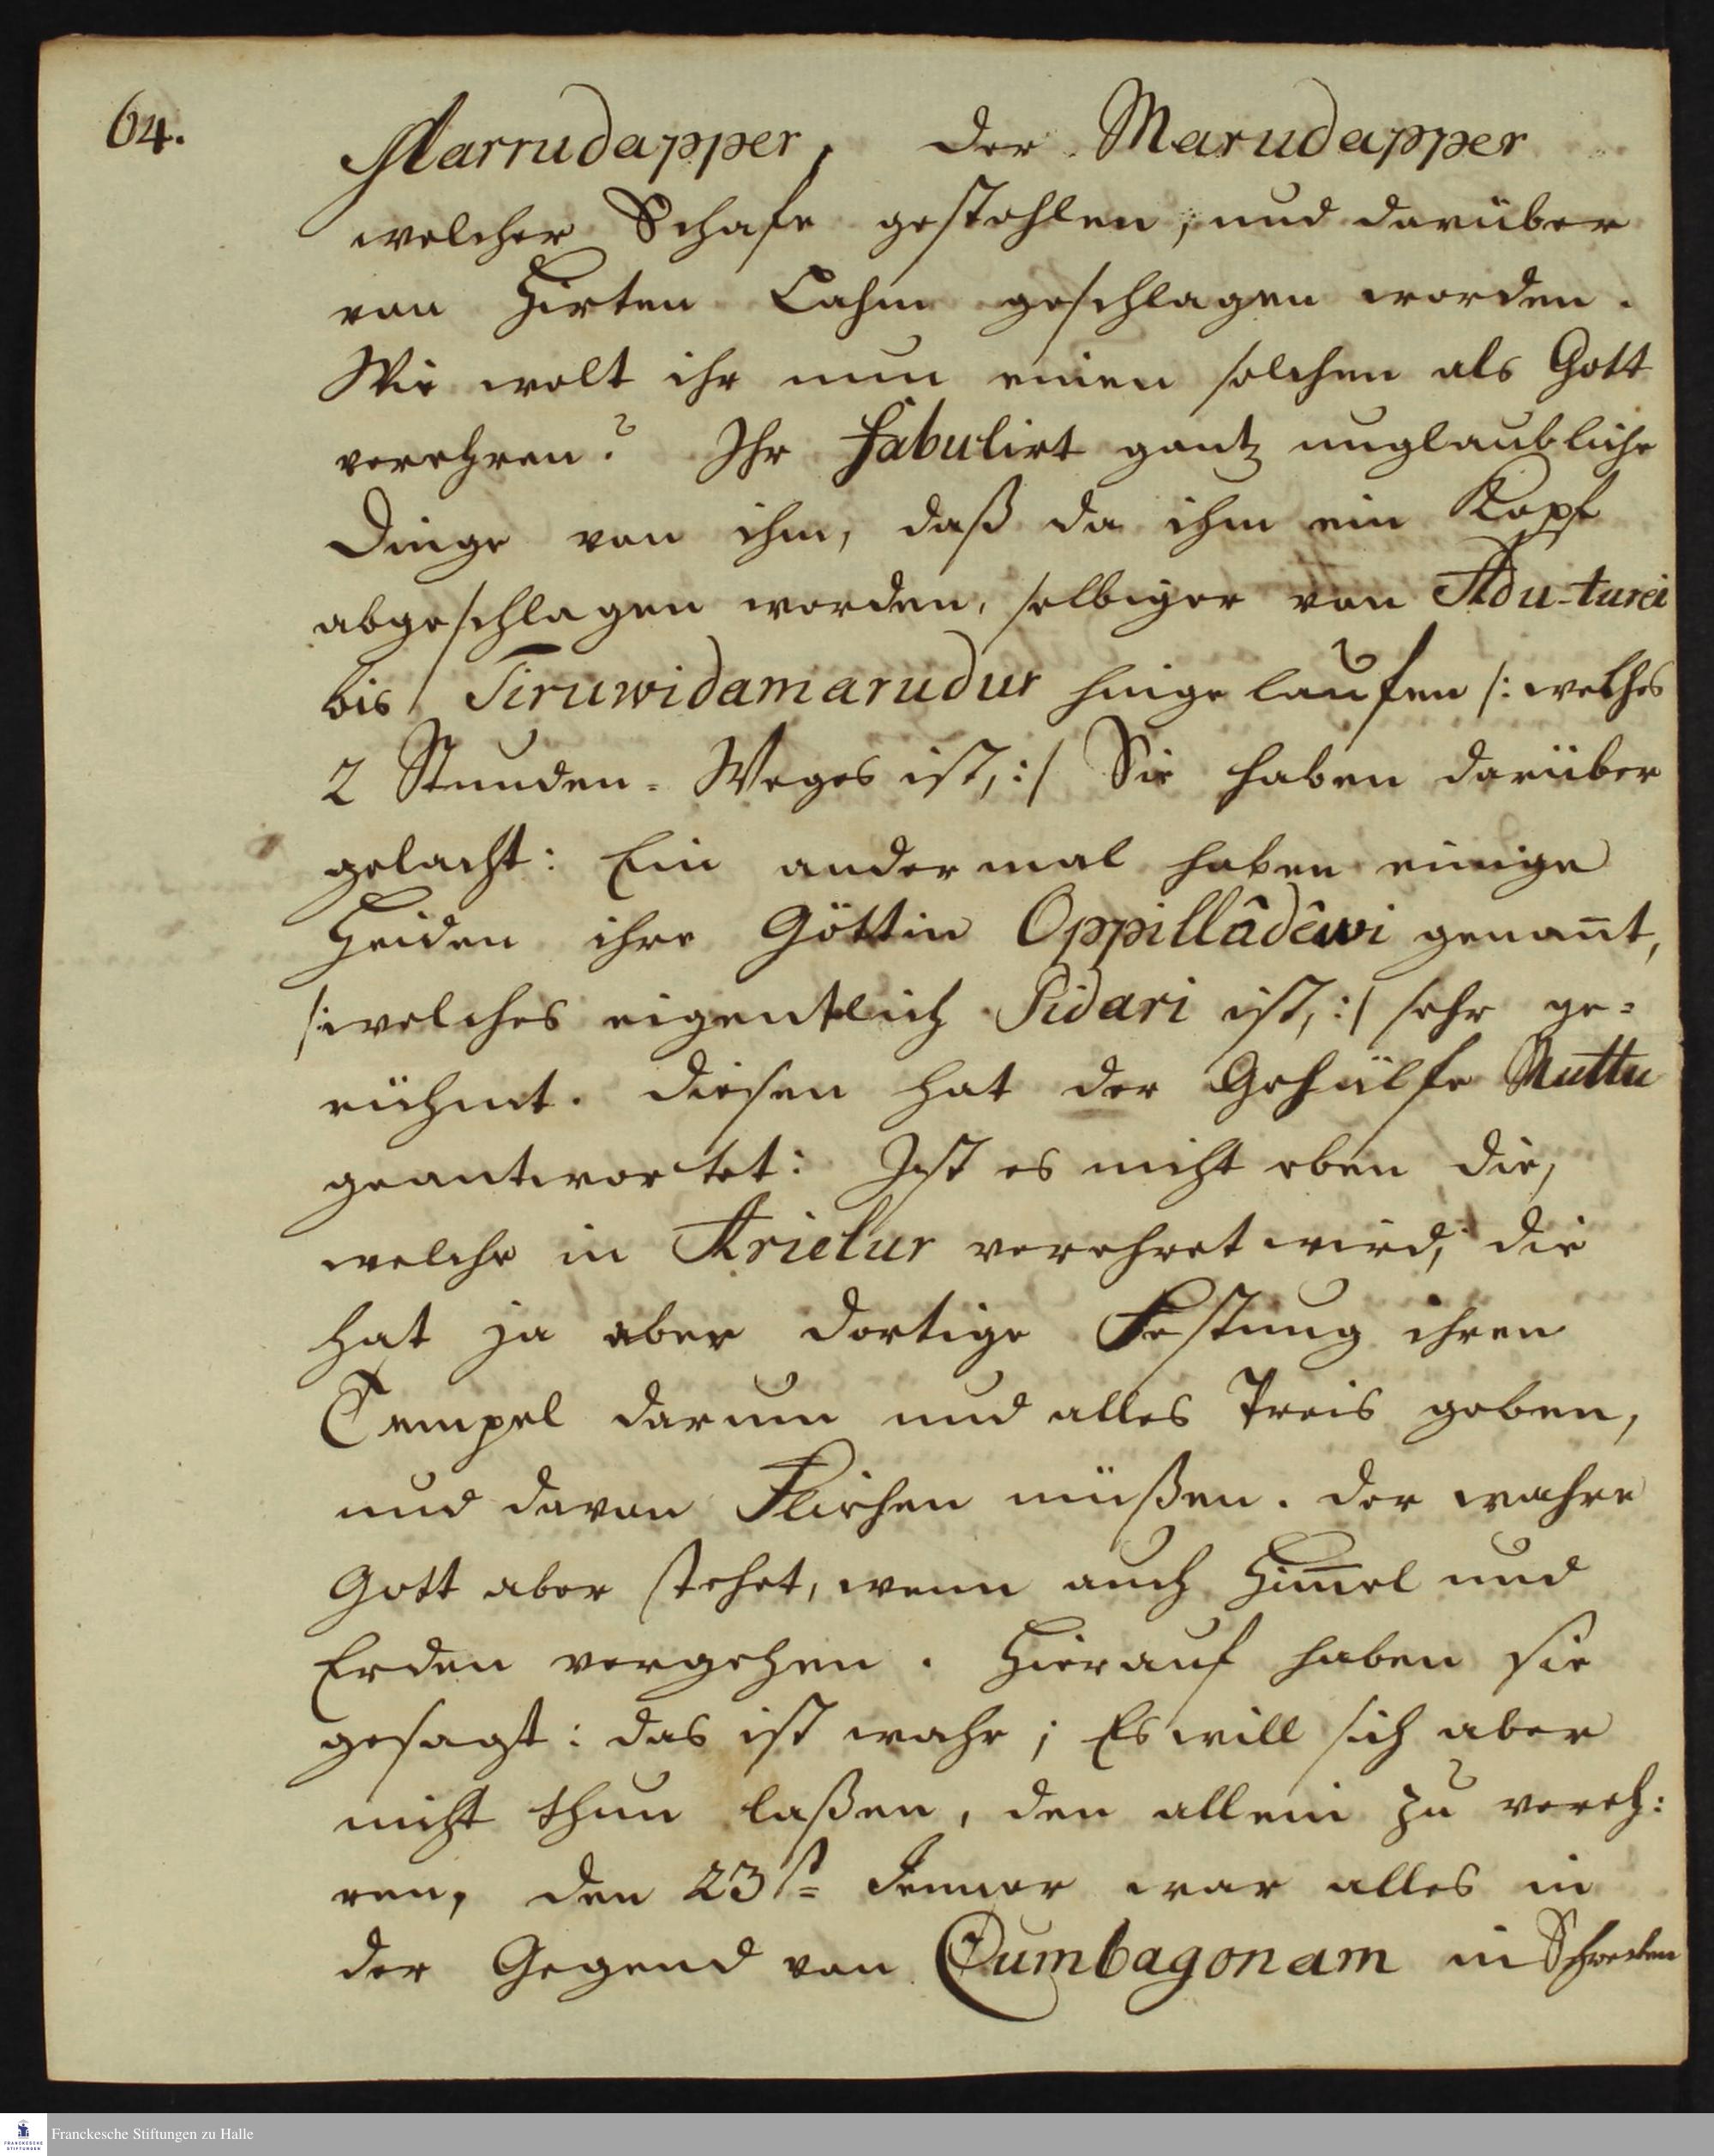 64.
Marrudapper, der Marudapper
welcher Schafe gestohlen, und darüber
von Hirten Lahm geschlagen worden.
Wie wolt ihr nun einen solchen als Gott
verehren? Ihr fabulirt gantz unglaubliche
Dinge von ihm, daß da ihm ein Kopf
abgeschlagen worden, selbiger von Adu-turei
bis Tiruwidamarudur hingelaufen /: welches
2 Stunden-Weges ist, :/ Sie haben darüber
gelacht: Ein andermal haben einige
Heiden ihre Göttin Oppillâdêwi genan̄t,
/: welches eigentlich Pidari ist, :/ sehr ge-
rühmt. diesen hat der Gehülfe Muttu
geantwortet: Ist es nicht eben die,
welche in Arielur verehret wird, die
hat ja aber dortige Festung ihren
Tempel darum und alles Preis geben,
und davon Fliehen müßen. der wahre
Gott aber stehet, wenn auch Him̄el und
Erden vergehen. Hierauf haben sie
gesagt: das ist wahr; Es will sich aber
nicht thun laßen, den allein zu vereh:
ren, den 23st Jenner war alles in
der Gegend von Cumbagonam in Schrecken
Franckesche Stiftungen zu Halle